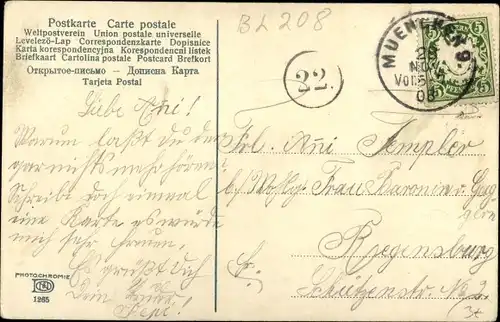 Postkarte Carte postale
Weltpostverein Union postale universelle
Levelező-Lap Correspondenzkarte Dopisnice
Karta korespondencyjna Korespondencni listek
Briefkaart Cartolina postale Postcard Brefkort
Открытое-письмо — Дописна Карта
Tarjeta Postal
BL 208
MUENCHEN 9
NOV
08
22.
5 5
PFENNIG
Liebe Ani!
Warum laßt du den
gar nichts mehr hören?
Schreibe doch einmal
eine Karte es würde
mich sehr freuen.
Es grüßt Dich
Dein
Frl. Ani Templer
Frau Baronin v.
Regensburg
Schützenstr. No 2
PHOTOCHROMIE
1265